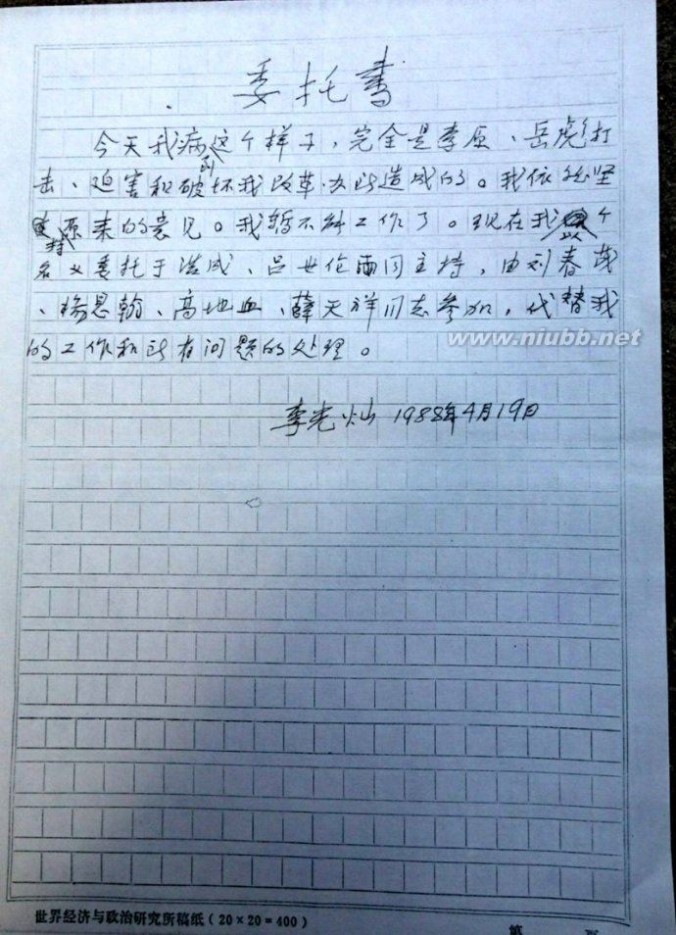 委托书
今天我病的这个样子，完全是李原、岳彪打
击、迫害和破坏我改革办所造成的。我依然坚
持原来的意见。我暂不能工作了。现在我以个
名义委托于浩成、吕世伦两同主持，由刘春茂
、杨恩翰、高地血、薛天祥同志参加，代替我
的工作和所有问题的处理。
www.niubb.net
李光灿 1988年4月19日
世界经济与政治研究所稿纸（20×20=400）
第 页